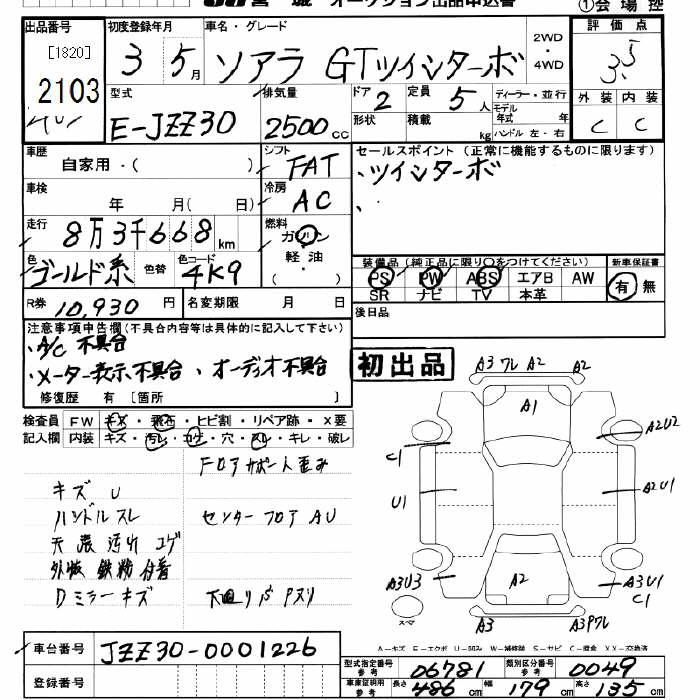 宮城 オークション出品申込書 ①会場控
出品番号 初度登録年月 車名・グレード 2WD・4WD 評価点
[1820] 3 5月 ソアラ GTツインターボ 3.5
2103 型式 排気量 ドア 2 定員 5人 ディーラー・並行 外装 内装
E-JZZ30 2500cc 形状 積載 kg モデル年式 年 ハンドル 左・右 C C
車歴 自家用・( ) シフト FAT セールスポイント (正常に機能するものに限ります)
車検 年 月(日) 冷房 AC 、ツインターボ
走行 8万3千668km 燃料 ガソリン 軽油 ( )
色 ゴールド系 色替 色コード 4K9 装備品(純正品に限り○をつけてください) 新車保証書
PS PW ABS エアB AW 有 無
SR ナビ TV 本革
R券 10,930円 名変期限 月 日 後日品
注意事項申告欄(不具合内容等は具体的に記入して下さい)
・A/C 不具合
・メーター表示不具合、オーディオ不具合
修復歴 有[箇所 ]
初出品
検査員 FW キズ・飛石・ヒビ割・リペア跡・X要
記入欄 内装 キズ・汚レ・コゲ・穴・スレ・キレ・破レ
フロアサポート歪み
キズ U
ハンドルスレ センターフロアAU
天張汚レ コゲ
外板 鉄粉付着
Dミラーキズ 下廻りサビPヌリ
A3 ワレ A2 A2
A1
A2U2
C1
U1 A2U1
A3U3 A2 A3U1
C1
スマ A3 A3Pワレ
A-キズ E-エクボ U-凹み W-補修跡 S-サビ C-腐食 XX-交換済
車台番号 JZZ30-0001226
型式指定番号 参考 06781 類別区分番号 参考 0049
登録番号 車庫証明用 参考 長さ 486cm 幅 179cm 高さ 135cm